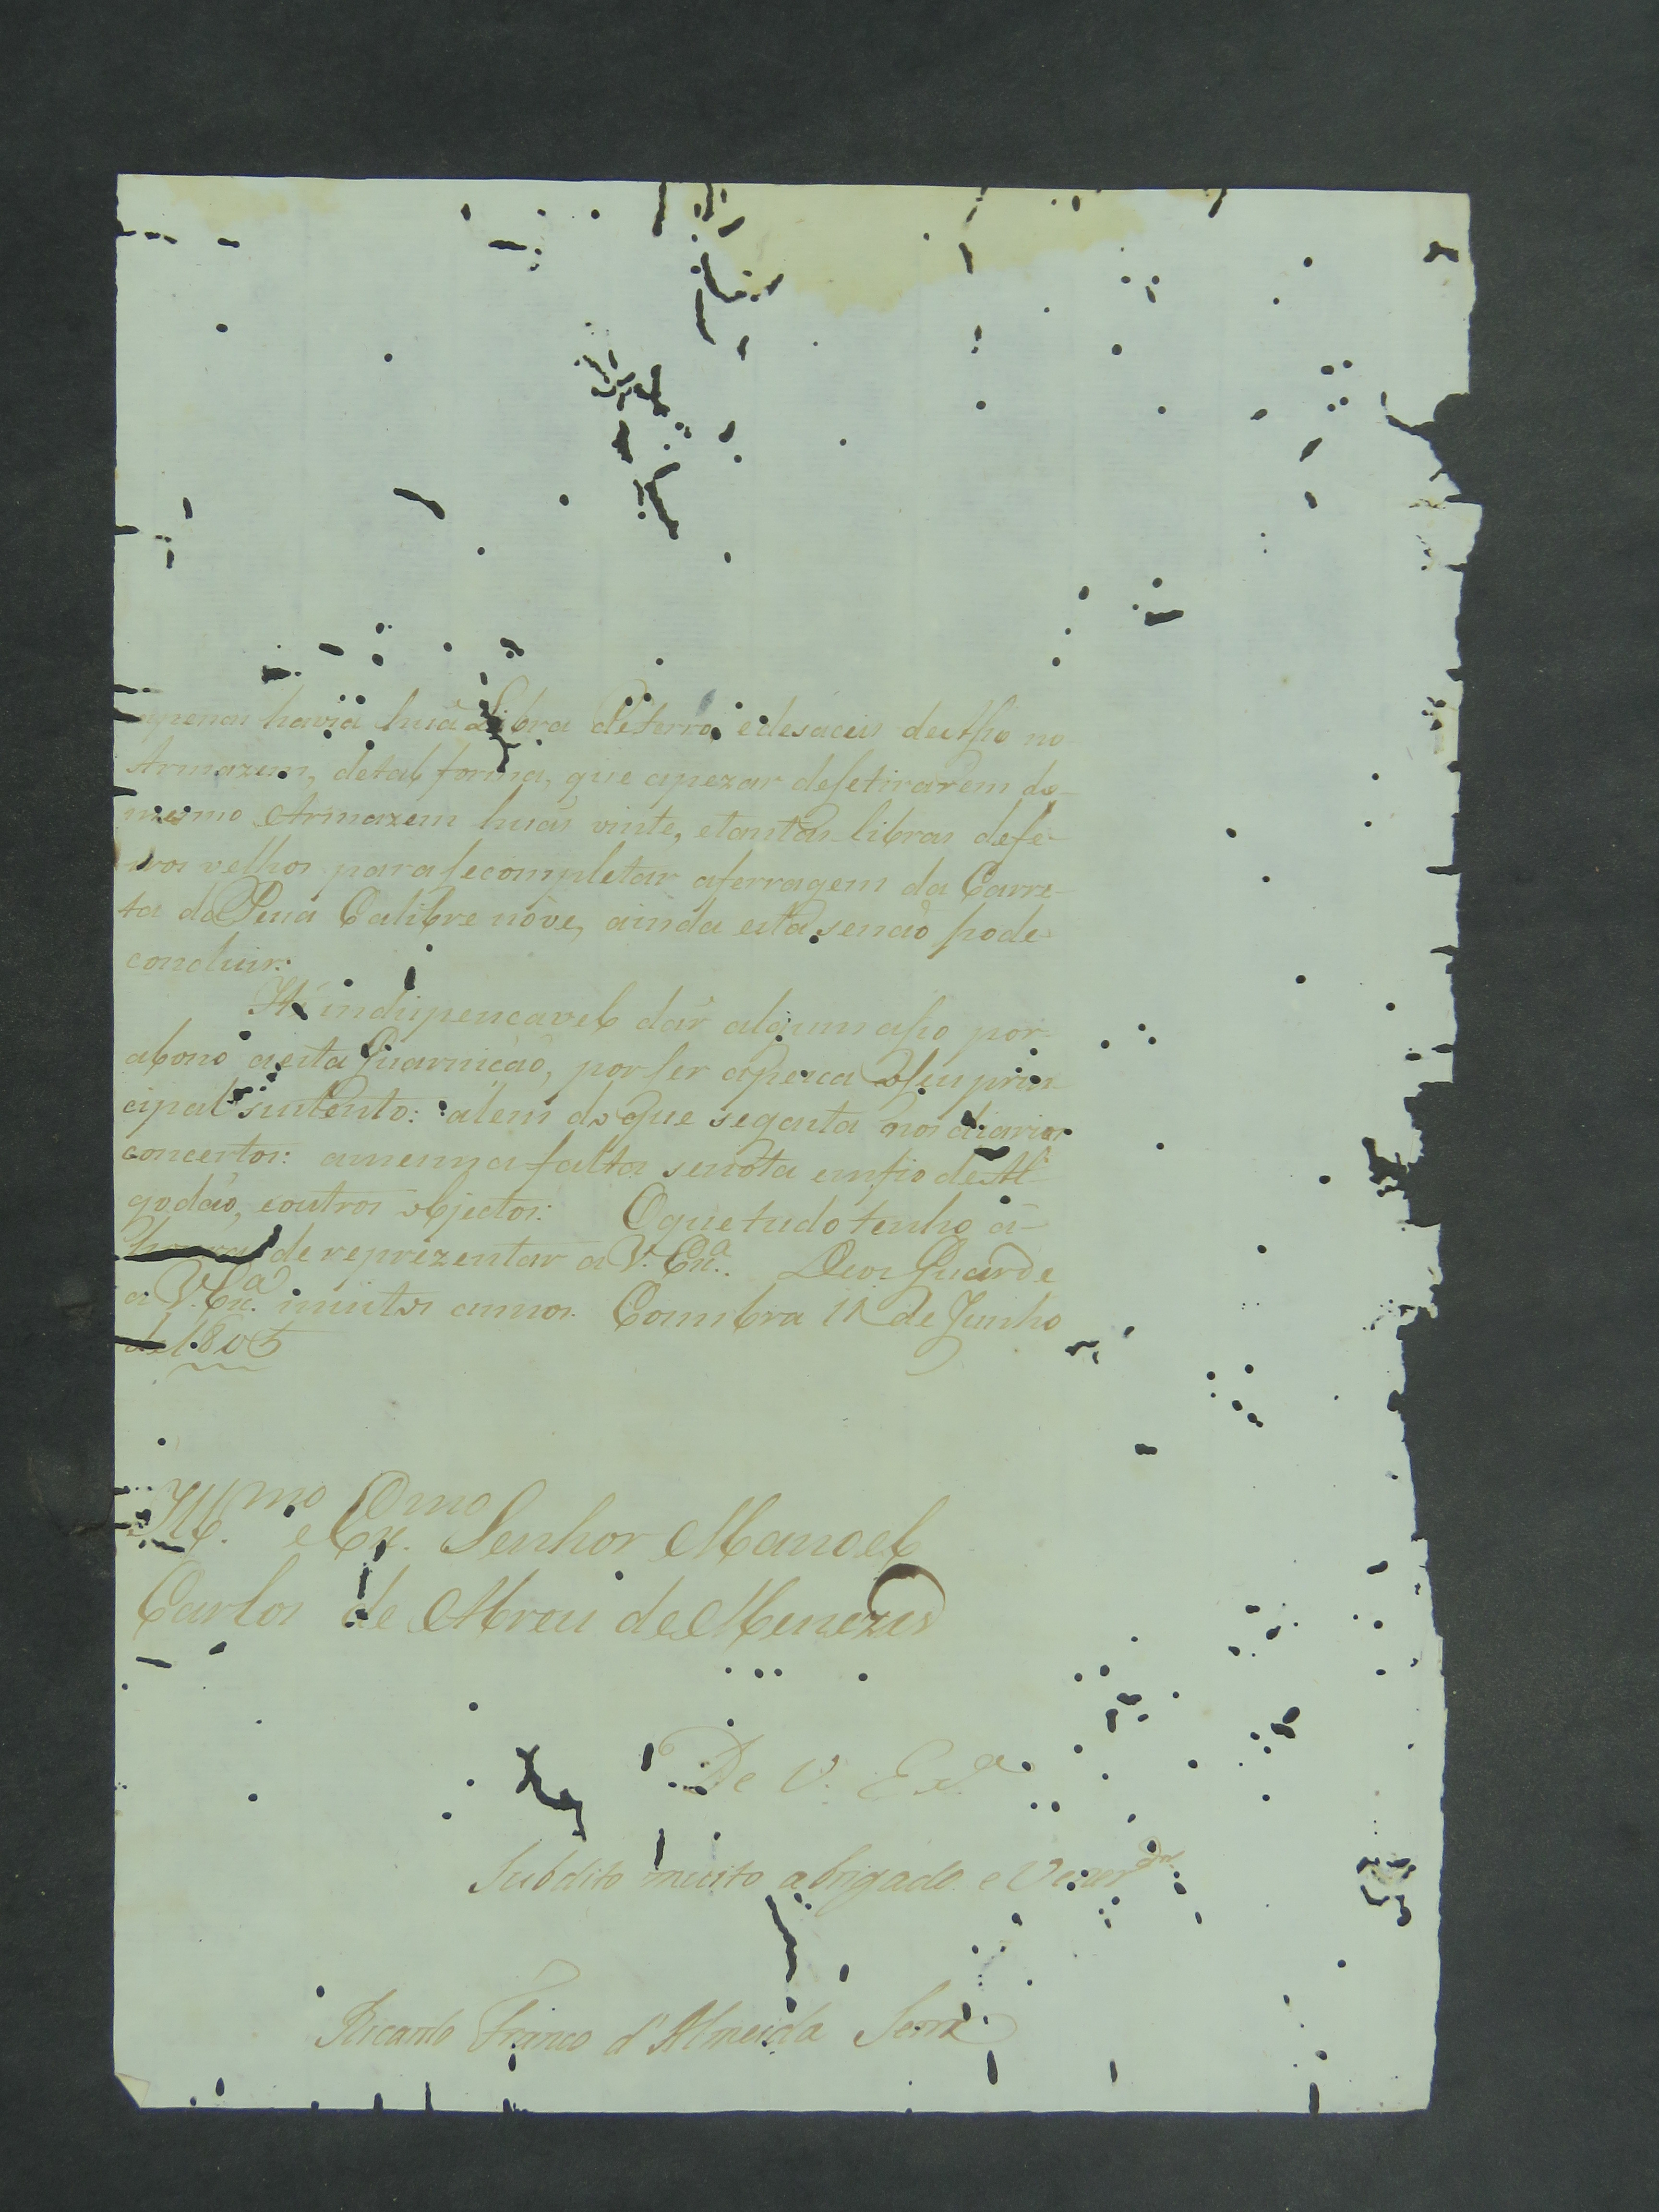 apenas havia huã Libra de ferro, e de sáceis de Aſso no
Armazem, de tal forma, que apezar de ſe tirarem do
mesmo Armazem huãs vinte, e tantas libras de fe-
rros velhos para ſe completar a ferragem da Carre-
ta da Peua Calibre nove, ainda esta se não pode
concluir.
Hé indispencavel dar algum aſso por
abono a esta Guarnicaõ, por ſer a pesca o ſeu prin
cipal sustento: alem do que se gasta nos diarios
concertos: a mesma falta se nota em fio de Al-
godaõ, e outros objectos: O que tudo tenho a
honra de reprezentar a V. Exª. Deos Guarde
a V. Exª. muitos annos. Coimbra 11 de Junho
de 1805
Illmo. e Exmo. Senhor Manoel
Carlos de Abreu de Menezes
De V. Exª.
Subdito muito obrigado e Vener.dor
Ricardo Franco d'Almeida Serra